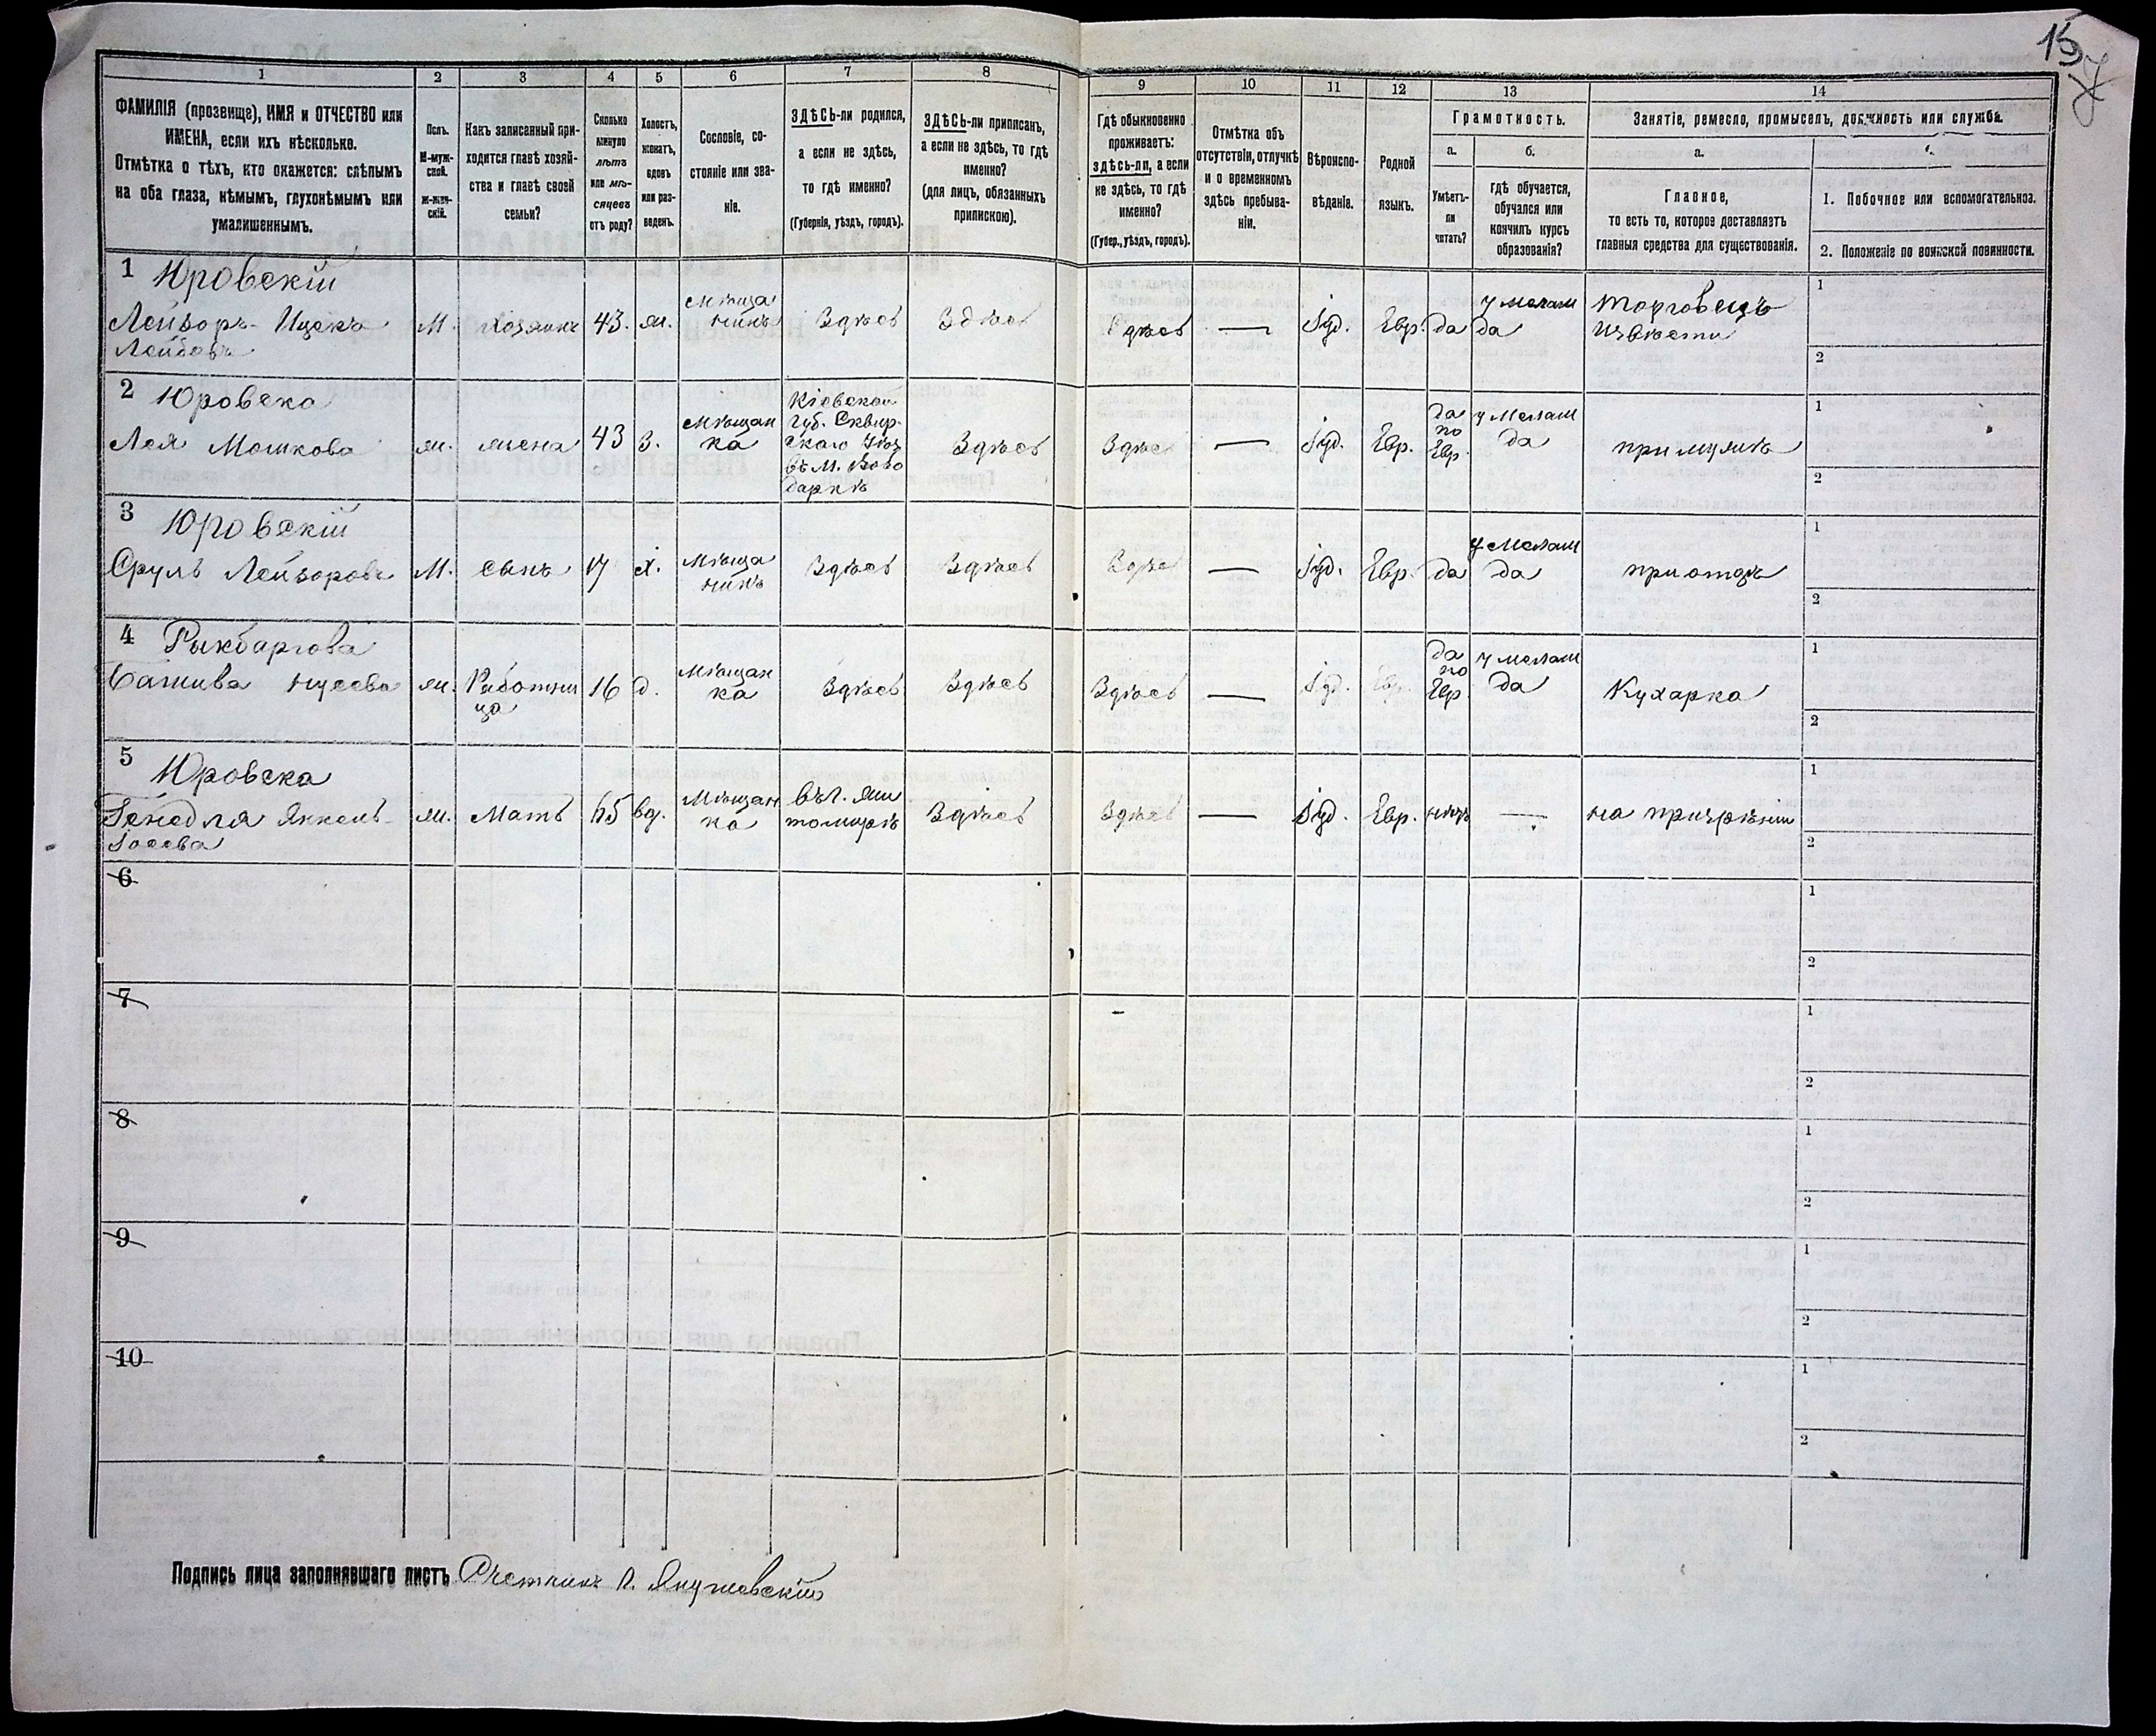 15
1
2
3
4
5
6
7
8
9
10
11
12
13
14
ФАМИЛІЯ (прозвище), ИМЯ и ОТЧЕСТВО или
ИМЕНА, если ихъ нѣсколько.
Отмѣтка о тѣхъ, кто окажется: слѣпымъ
на оба глаза, нѣмымъ, глухонѣмымъ или
умалишеннымъ.
Полъ.
М-муж-
ской.
Ж-жен-
скій.
Какъ записанный при-
ходится главѣ хозяй-
ства и главѣ своей
семьи?
Сколько
минуло
лѣтъ
или мѣ-
сяцевъ
отъ роду?
Холостъ,
женатъ,
вдовъ
или раз-
веденъ.
Сословіе, со-
стояніе или зва-
ніе.
ЗДѢСЬ-ли родился,
а если не здѣсь,
то гдѣ именно?
(Губернія, уѣздъ, городъ).
ЗДѢСЬ-ли приписанъ,
а если не здѣсь, то гдѣ
именно?
(для лицъ, обязанныхъ
припискою).
Гдѣ обыкновенно
проживаетъ:
здѣсь-ли, а если
не здѣсь, то гдѣ
именно?
(Губер., уѣздъ, городъ).
Отмѣтка объ
отсутствіи, отлучкѣ
и о временномъ
здѣсь пребыва-
ніи.
Вѣроиспо-
вѣданіе.
Родной
языкъ.
Грамотность.
а.
Умѣетъ-
ли
читать?
б.
гдѣ обучается,
обучался или
кончилъ курсъ
образованія?
Занятіе, ремесло, промыселъ, должность или служба.
а.
Главное,
то есть то, которое доставляетъ
главныя средства для существованія.
1. Побочное или вспомогательное.
2. Положеніе по воинской повинности.
1 Юровскій
Лейзоръ-Ицекъ
Лейбовъ
М.
Хозяинъ
43.
ж.
Мѣща
нинъ
Здѣсь
Здѣсь
Здѣсь
—
Іуд.
Евр.
да
у мелам
да
Торговецъ
Извѣсти
1
2
2 Юровска
Лея Мошкова
ж.
жена
43
З.
Мѣщан
ка
Кіевской
Губ. Сквир-
скаго Уѣз
въ М. Воло
даркѣ
Здѣсь
Здѣсь
—
Іуд.
Евр.
да
по
Евр.
у Мелам
да
при мужѣ
1
2
3 Юровскій
Сруль Лейзоровъ
М.
сынъ
17
х.
Мѣща
нинъ
Здѣсь
Здѣсь
Здѣсь
—
Іуд.
Евр.
да
у Мелам
да
при отцѣ
1
2
4
ж.
Работни
ца
16
д.
Мѣщан
ка
Здѣсь
Здѣсь
Здѣсь
—
Іуд.
Евр.
да
по
Евр
у мелам
да
Кухарка
1
2
5
Юровска
Генедля Янкель-
Іосева
ж.
Мать
65
вд.
Мѣщан
ка
въ г. Жи
томирѣ
Здѣсь
Здѣсь
—
Іуд.
Евр.
нѣтъ
—
на призрѣніи
1
2
6
1
2
7
1
2
8
1
2
9
1
2
10
1
2
Подпись лица заполнявшаго листъ Счетчикъ